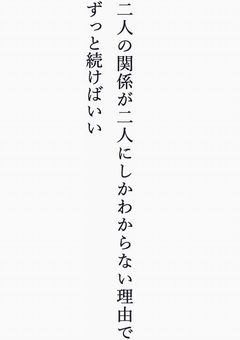 二人の関係が二人にしかわからない理由で
ずっと続けばいい